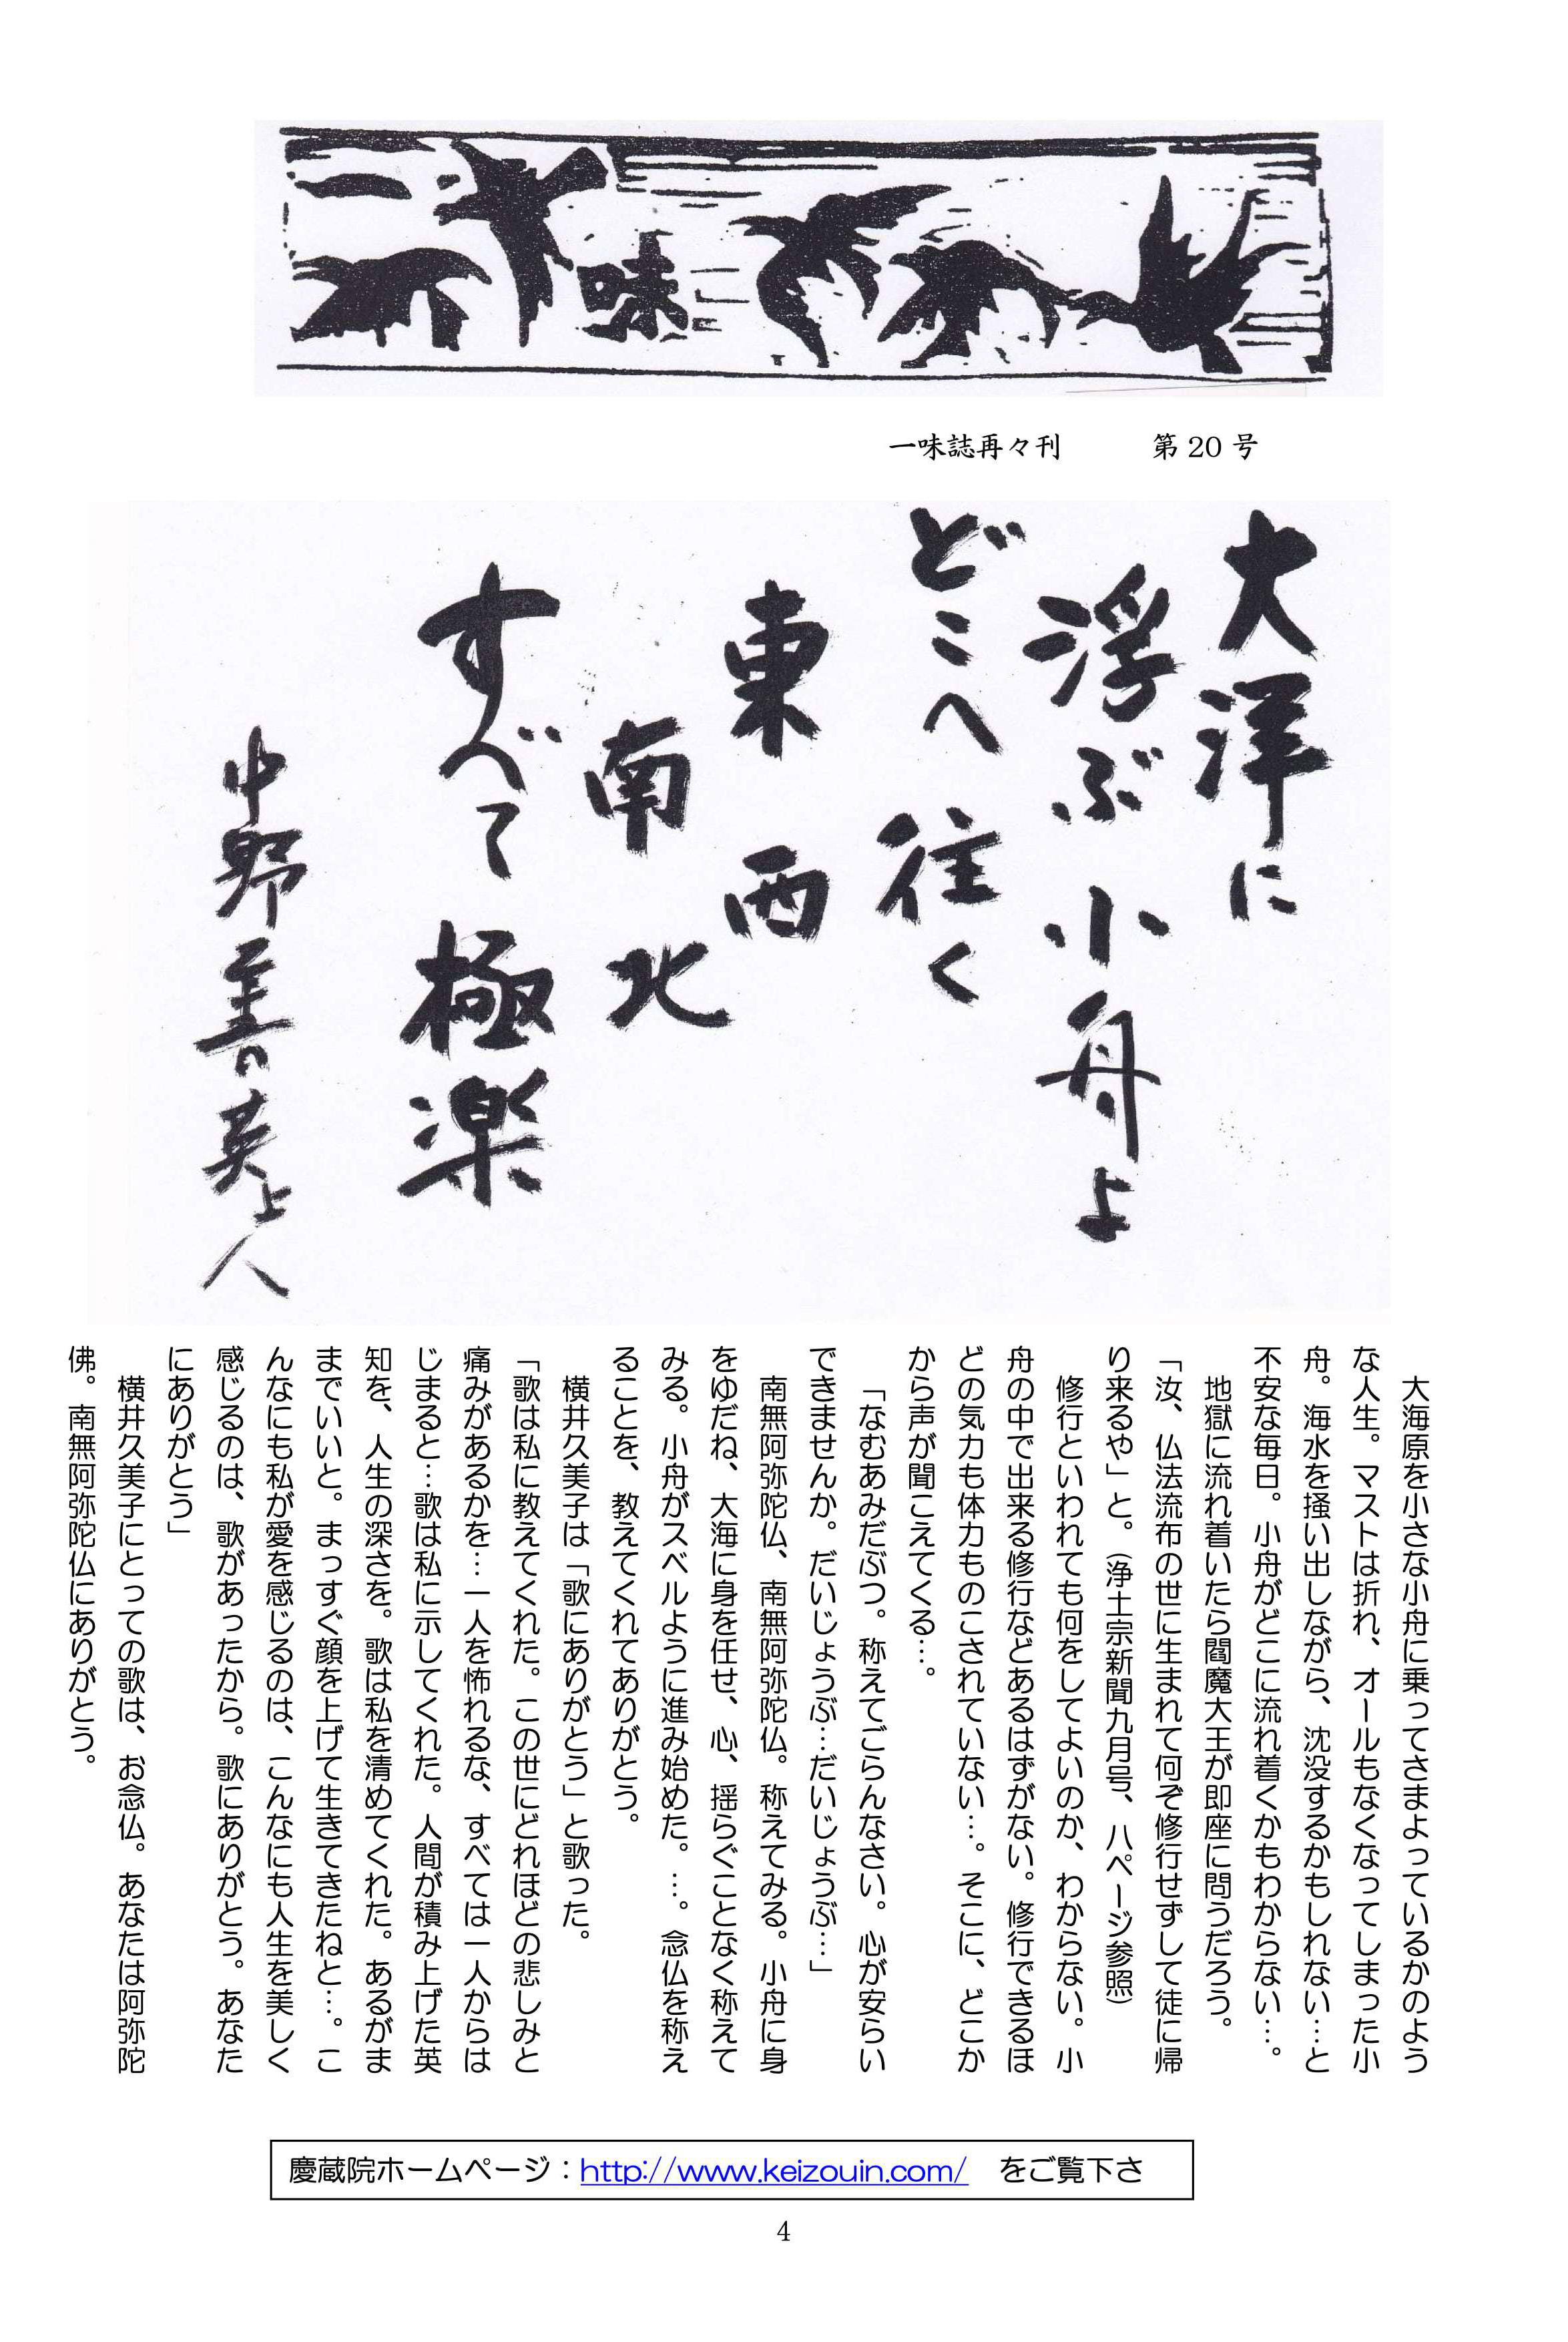 一味
一味誌再々刊　第20号
大洋に
浮ぶ小舟よ
どこへ往く
東西
南北
すべて極楽
中野善英上人
大海原を小さな小舟に乗ってさまよっているかのよう
な人生。マストは折れ、オールもなくなってしまった小
舟。海水を掻い出しながら、沈没するかもしれない…と
不安な毎日。小舟がどこに流れ着くかもわからない…。
地獄に流れ着いたら閻魔大王が即座に問うだろう。
「汝、仏法流布の世に生まれて何ぞ修行せずして徒に帰
り来るや」と。（浄土宗新聞九月号、八ページ参照）
修行といわれても何をしてよいのか、わからない。小
舟の中で出来る修行などあるはずがない。修行できるほ
どの気力も体力ものこされていない…。そこに、どこか
から声が聞こえてくる…。
「なむあみだぶつ。称えてごらんなさい。心が安らい
できませんか。だいじょうぶ…だいじょうぶ…」
南無阿弥陀仏、南無阿弥陀仏。称えてみる。小舟に身
をゆだね、大海に身を任せ、心、揺らぐことなく称えて
みる。小舟がスベルように進み始めた。…。念仏を称え
ることを、教えてくれてありがとう。
横井久美子は「歌にありがとう」と歌った。
「歌は私に教えてくれた。この世にどれほどの悲しみと
痛みがあるかを…一人を怖れるな、すべては一人からは
じまると…歌は私に示してくれた。人間が積み上げた英
知を、人生の深さを。歌は私を清めてくれた。あるがま
までいいと。まっすぐ顔を上げて生きてきたねと…。こ
んなにも私が愛を感じるのは、こんなにも人生を美しく
感じるのは、歌があったから。歌にありがとう。あなた
にありがとう」
横井久美子にとっての歌は、お念仏。あなたは阿弥陀
佛。南無阿弥陀仏にありがとう。
慶蔵院ホームページ：http://www.keizouin.com/　をご覧下さ
4